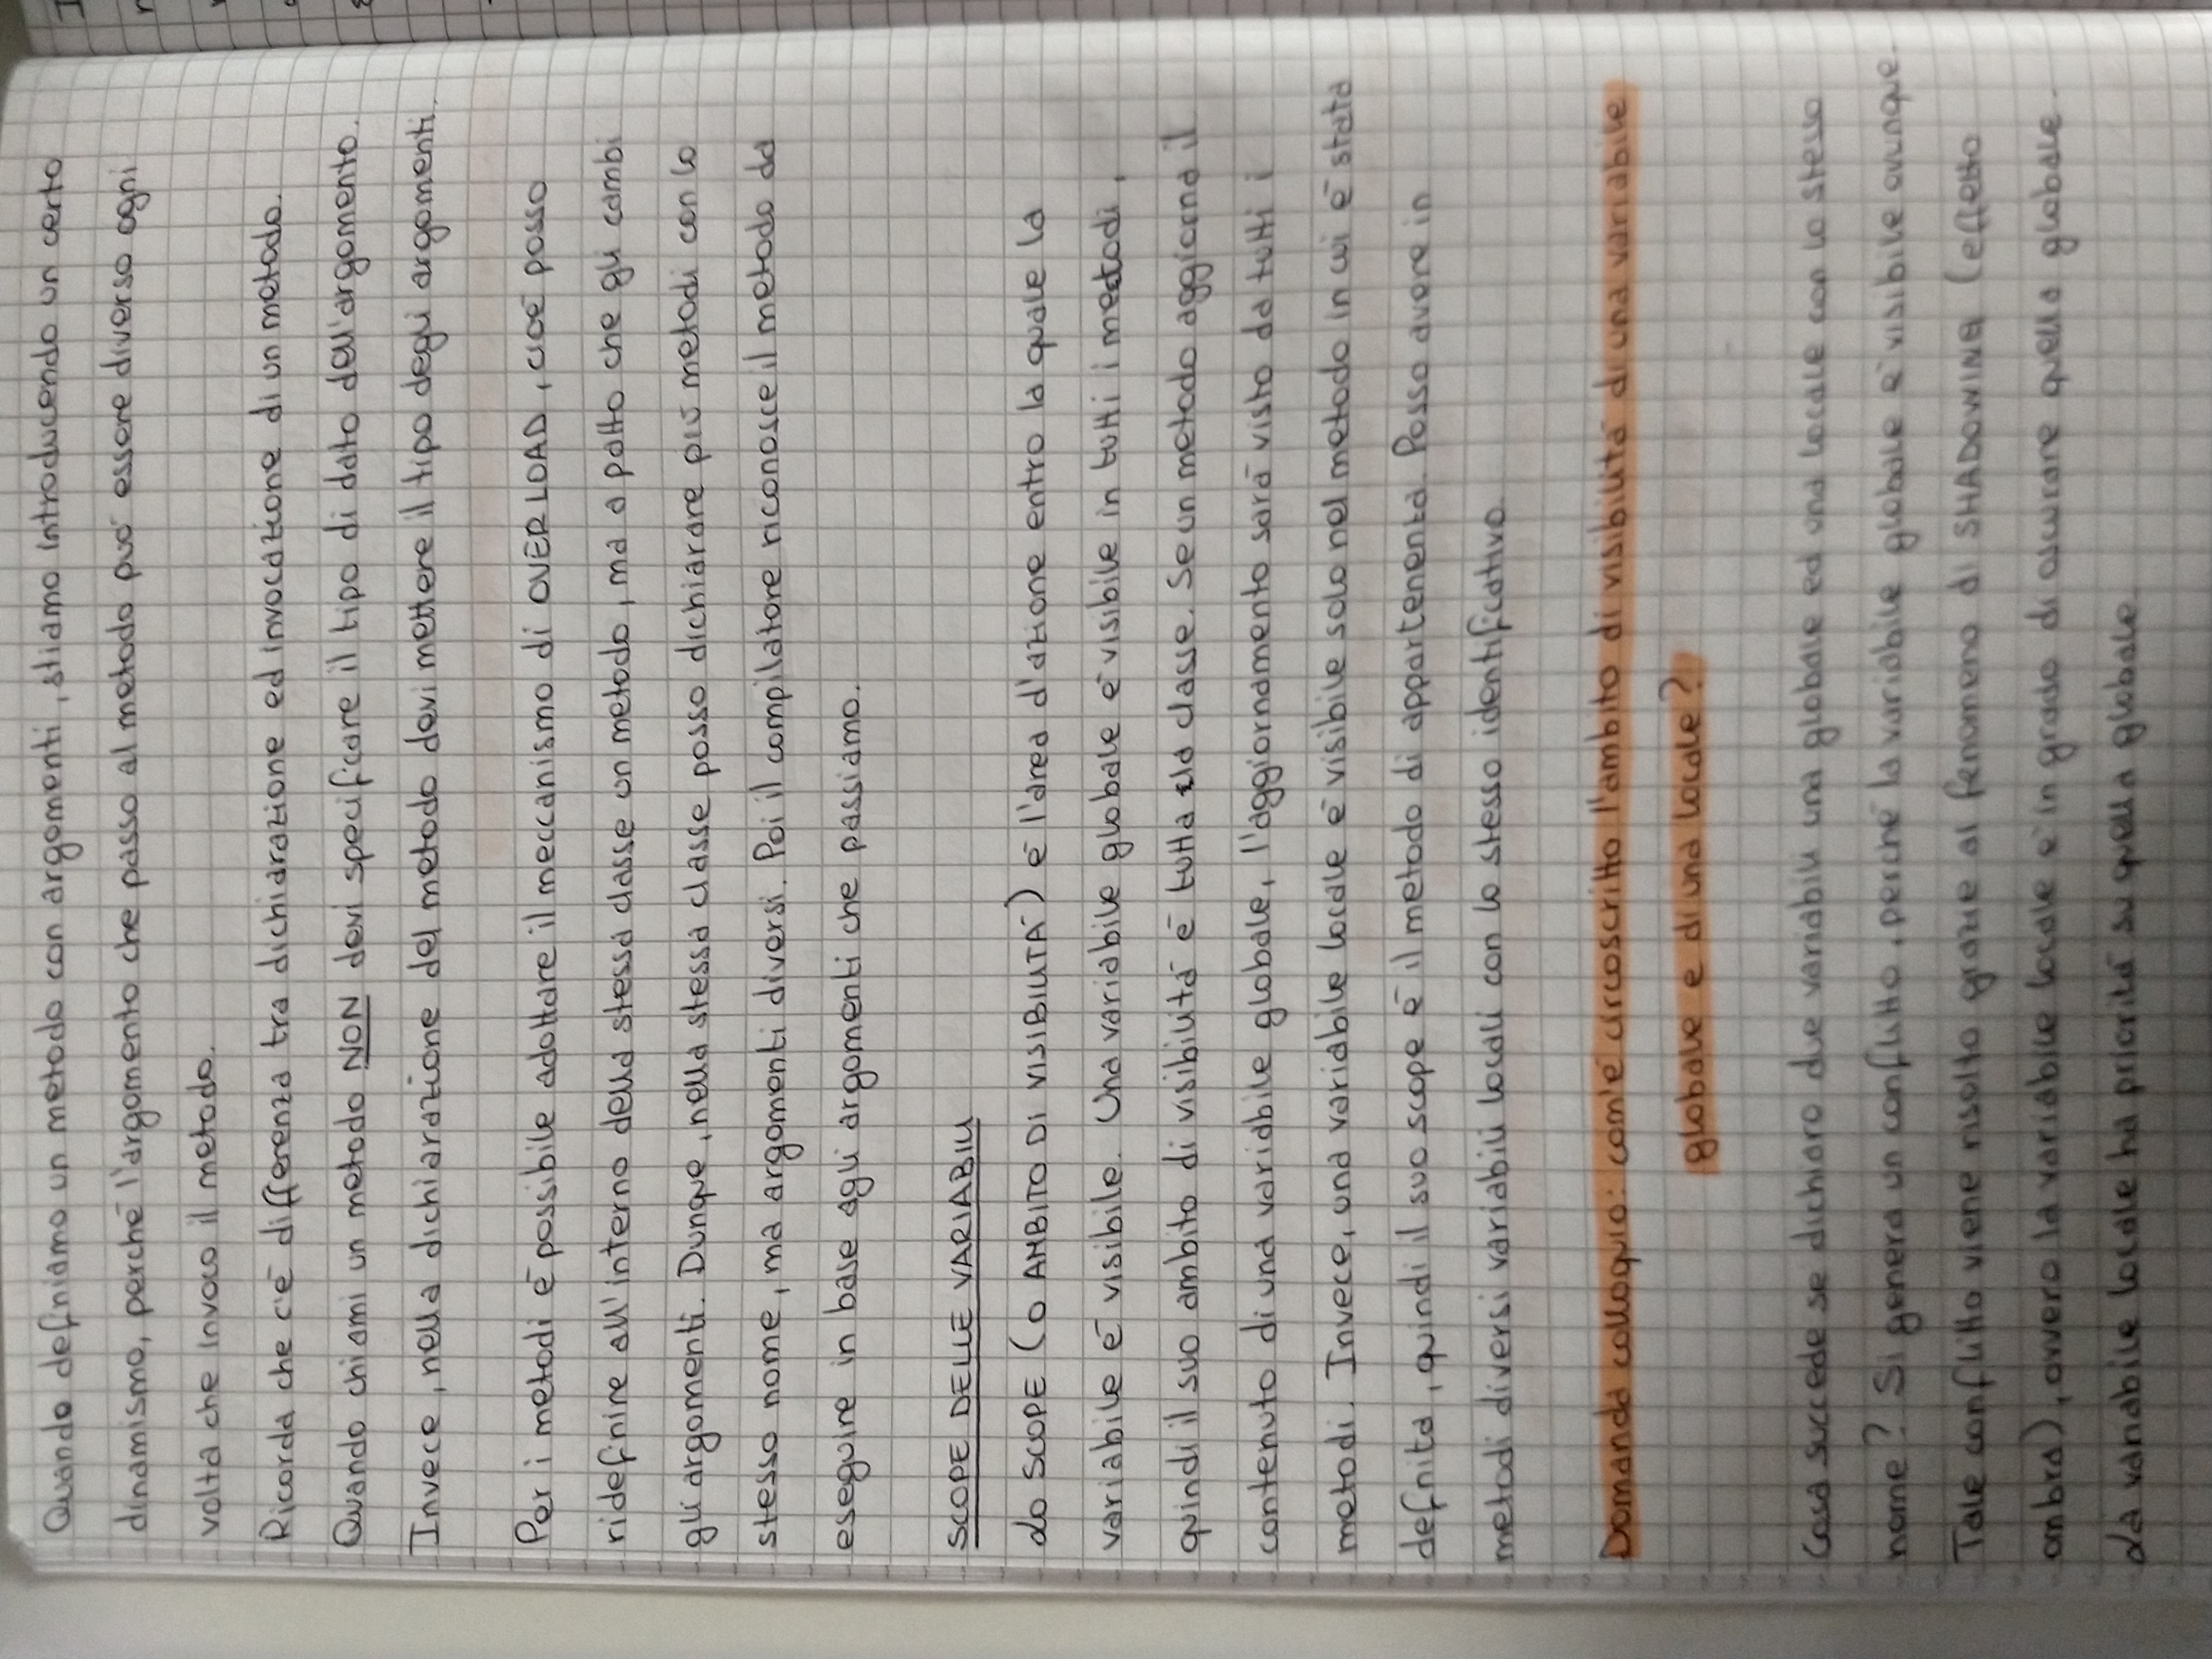 Quando definiamo un metodo con argomenti, stiamo introducendo un certo
dinamismo, perché l'argomento che passo al metodo può essere diverso ogni
volta che invoco il metodo.
Ricorda che c'è differenza tra dichiarazione ed invocazione di un metodo.
Quando chiami un metodo NON devi specificare il tipo di dato dell'argomento.
Invece, nella dichiarazione del metodo devi mettere il tipo degli argomenti.
Per i metodi è possibile adottare il meccanismo di OVERLOAD, cioè posso
ridefinire all'interno della stessa classe un metodo, ma a patto che gli cambi
gli argomenti. Dunque, nella stessa classe posso dichiarare più metodi con lo
stesso nome, ma argomenti diversi. Poi il compilatore riconosce il metodo da
eseguire in base agli argomenti che passiamo.
SCOPE DELLE VARIABILI
Lo SCOPE (O AMBITO DI VISIBILITÀ) è l'area d'azione entro la quale la
variabile è visibile. Una variabile globale è visibile in tutti i metodi,
quindi il suo ambito di visibilità è tutta la classe. Se un metodo aggiorna il
contenuto di una variabile globale, l'aggiornamento sarà visto da tutti i
metodi. Invece, una variabile locale è visibile solo nel metodo in cui è stata
definita, quindi il suo scope è il metodo di appartenenza. Posso avere in
metodi diversi variabili locali con lo stesso identificativo.
Domanda colloquio: com'è circoscritto l'ambito di visibilità di una variabile
globale e di una locale?
Cosa succede se dichiaro due variabili una globale ed una locale con lo stesso
nome? Si genera un conflitto, perché la variabile globale è visibile ovunque.
Tale conflitto viene risolto grazie al fenomeno di SHADOWING (effetto
ombra), ovvero la variabile locale è in grado di oscurare quella globale.
La variabile locale ha priorità su quella globale.